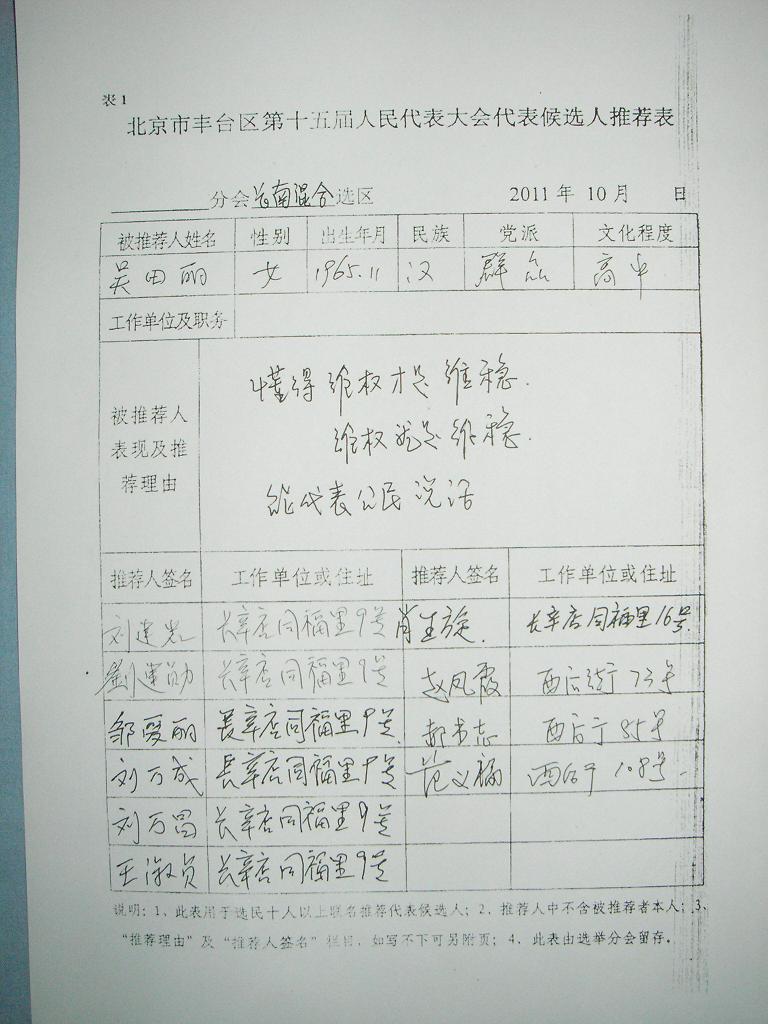 表1
北京市丰台区第十五届人民代表大会代表候选人推荐表
分会 长南混合 选区 2011年10月 日
被推荐人姓名 性别 出生年月 民族 党派 文化程度
吴田丽 女 1965.11 汉 群众 高中
工作单位及职务
被推荐人表现及推荐理由
懂得维权才是维稳.
维权就是维稳.
能代表公民说话
推荐人签名 工作单位或住址 推荐人签名 工作单位或住址
刘建 长辛店同福里9号 肖生旋. 长辛店同福里16号.
劉建勋 长辛店同福里9号 赵凤霞 西后街73号
邹爱丽 長辛店同福里9号. 郝书志 西后于85号
刘万成 長辛店同福里9号 范义福 西后于108号.
刘万昌 长辛店同福里9号
王淑贞 长辛店同福里9号
说明：1、此表用于选民十人以上联名推荐代表候选人；2、推荐人中不含被推荐者本人；3、
“推荐理由”及“推荐人签名”栏目，如写不下可另附页；4、此表由选举分会留存。